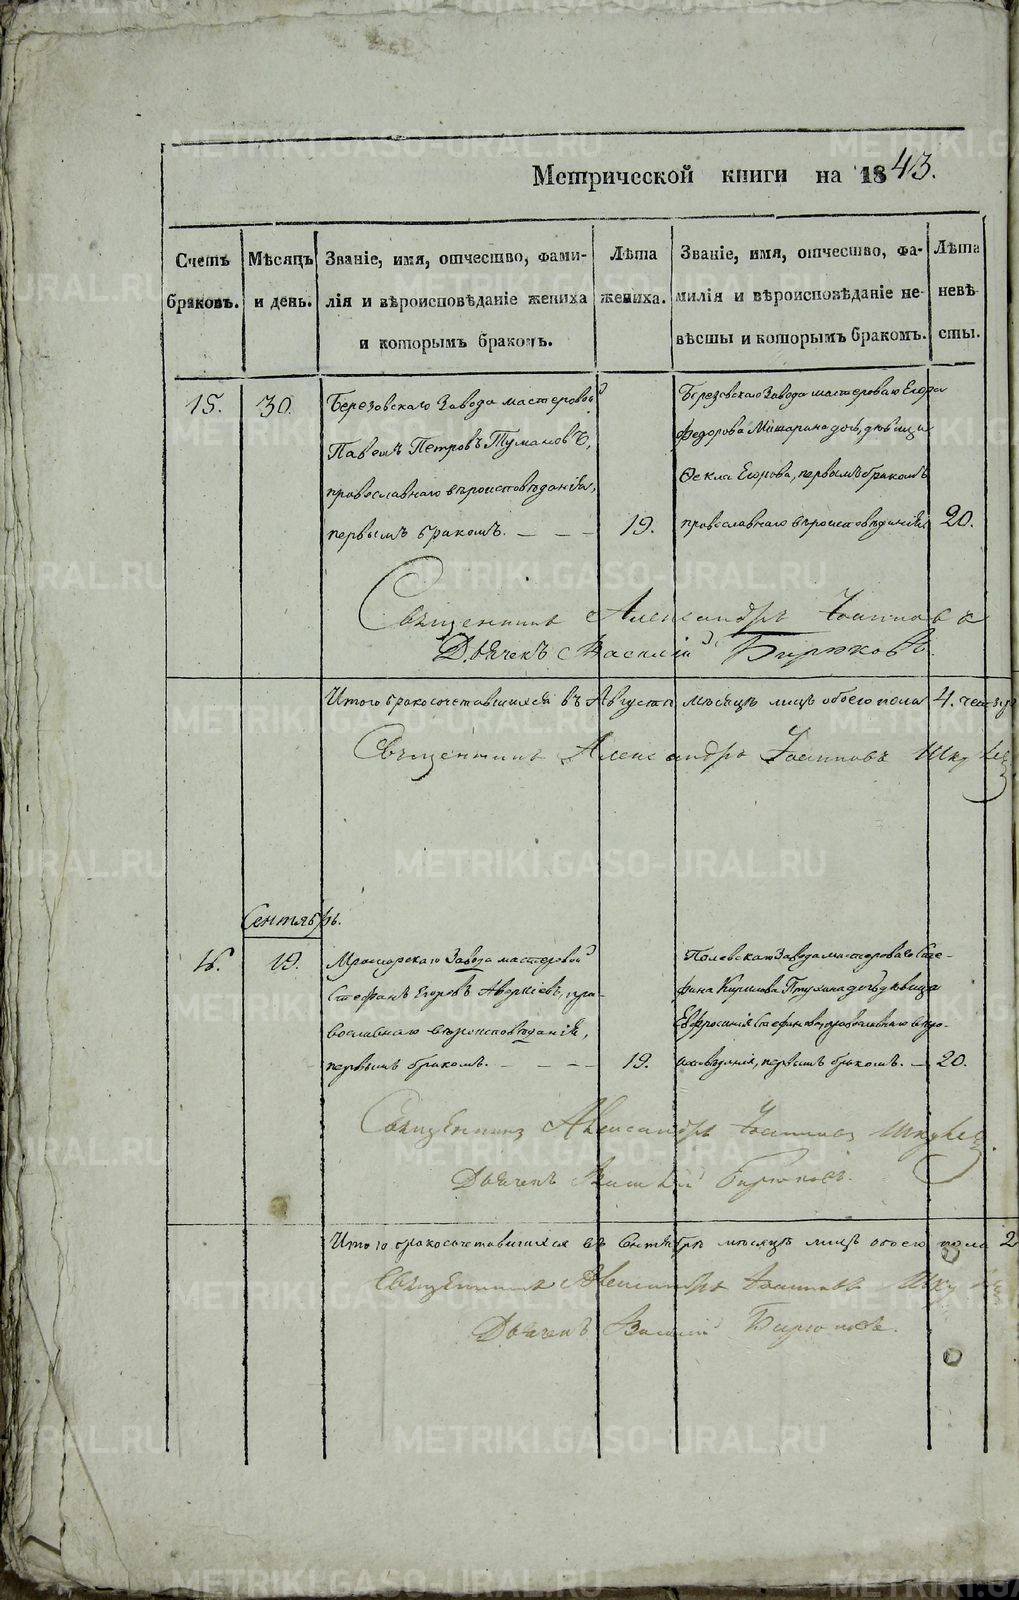 Метрической книги на 1843.
Счетъ браковъ.
Мѣсяцъ и день.
Званіе, имя, отчество, фами-
лія и вѣроисповѣданіе жениха
и которымъ бракомъ.
Лѣта
жениха.
Званіе, имя, отчество, фа-
милія и вѣроисповѣданіе не-
вѣсты и которымъ бракомъ.
Лѣта
невѣ-
сты.
15.
30.
Березовскаго Завода мастеровой
Павелъ Петровъ Тумановъ,
православнаго вѣроисповѣданія,
первымъ бракомъ.
19.
Березовскаго Завода мастероваго Егора
Федорова Мишарина дочь, дѣвица
Ѳекла Егорова, первымъ бракомъ
православнаго вѣроисповѣданія
20.
Священникъ Александръ Іоанновъ
Дьячекъ Василій Бирюковъ.
Итого бракосочетавшихся въ Августѣ мѣсяцѣ лицъ обоего пола 4. чет
Священникъ Александръ Іоанновъ
Сентябрь.
16.
19.
Мраморскаго Завода мастеровой
Стефанъ Егоровъ Аверкіевъ, пра-
вославнаго вѣроисповѣданія,
первымъ бракомъ.
19.
Полевскаго Завода мастероваго Сте-
фана Кирилова Птухина дочь дѣвица
Евфросинія Стефанова, православнаго вѣро-
исповѣданія, первымъ бракомъ.
20.
Священникъ Александръ Іоанновъ
Дьячекъ Василій Бирюковъ.
Итого бракосочетавшихся въ Сентябрѣ мѣсяцѣ лицъ обоего пола 2
Священникъ Александръ Іоанновъ
Дьячекъ Василій Бирюковъ.
METRIKI.GASO-URAL.RU